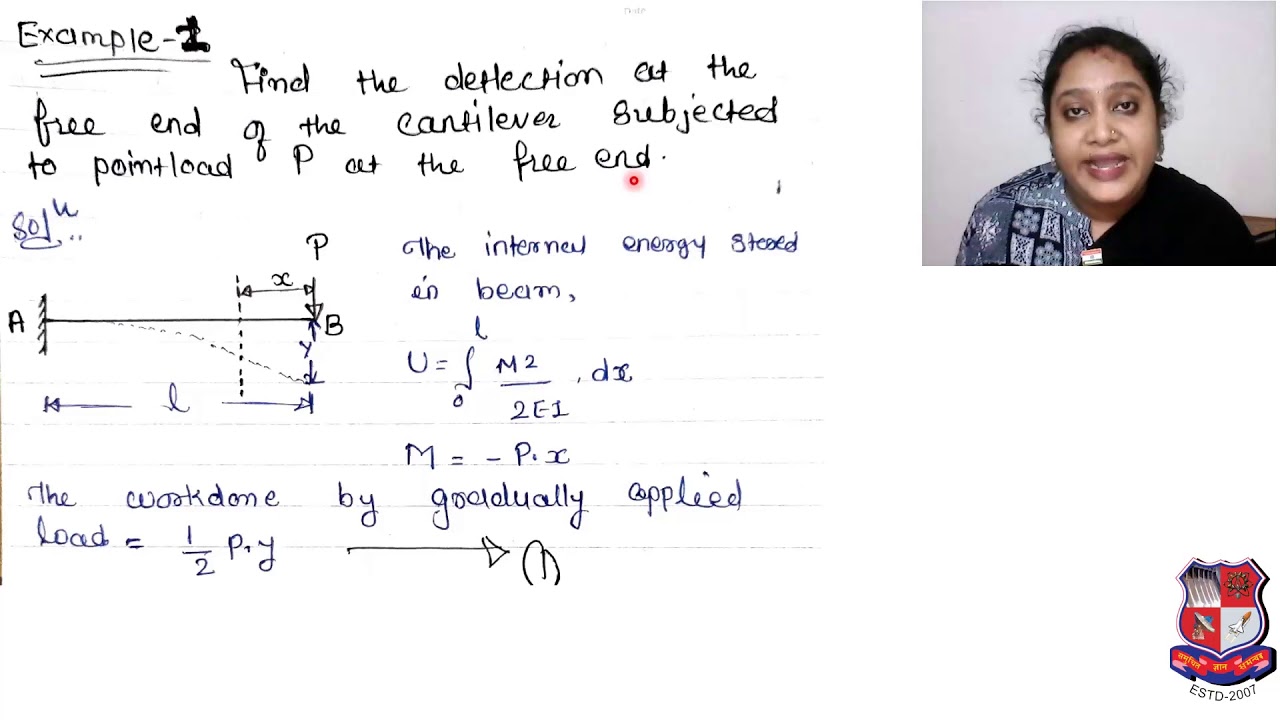 Example-1
Find the deflection at the
free end of the cantilever subjected
to point load P at the free end.
Solⁿ
P
x
A
B
y
l
The internal energy stored
in beam,
U = ∫₀ˡ M2/2EI . dx
M = - P.x
The workdone by gradually applied
load = 1/2 P.y → (1)
समुचित ज्ञान समन्वर
ESTD-2007